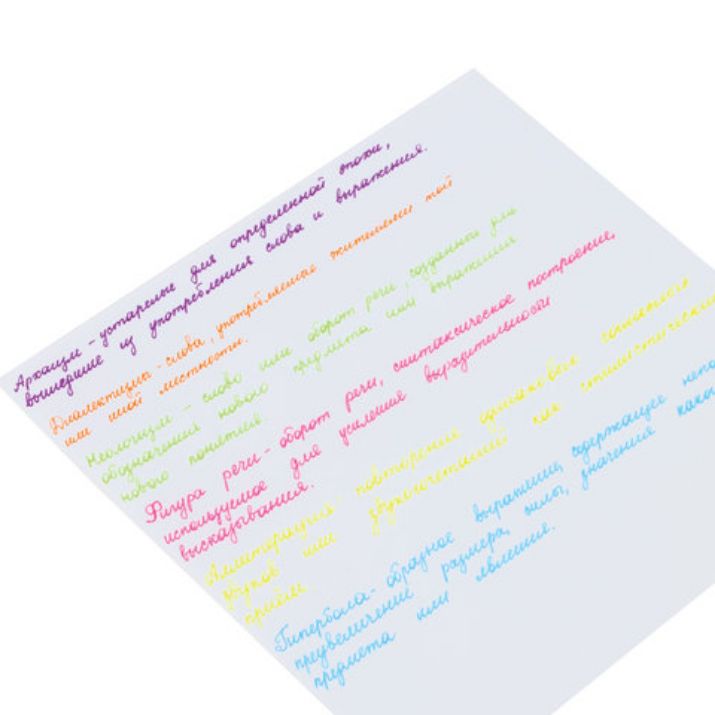 Архаизм - устарелые для определенной эпохи,
вышедшие из употребления слова и выражения.
Диалектизмы - слова, употребляемые жителями той
или иной местности.
Неологизм - слово или оборот речи, созданный для
обозначения нового предмета или выражения
нового понятия.
Фигура речи - оборот речи, синтаксическое построение,
используемое для усиления выразительности
высказывания.
Аллитерация повторение одинаковых
звуков или звукосочетаний как стилистический
приём.
Гипербола - образное выражение, содержащее непо
преувеличение размера, силы, значения како
предмета или явления.